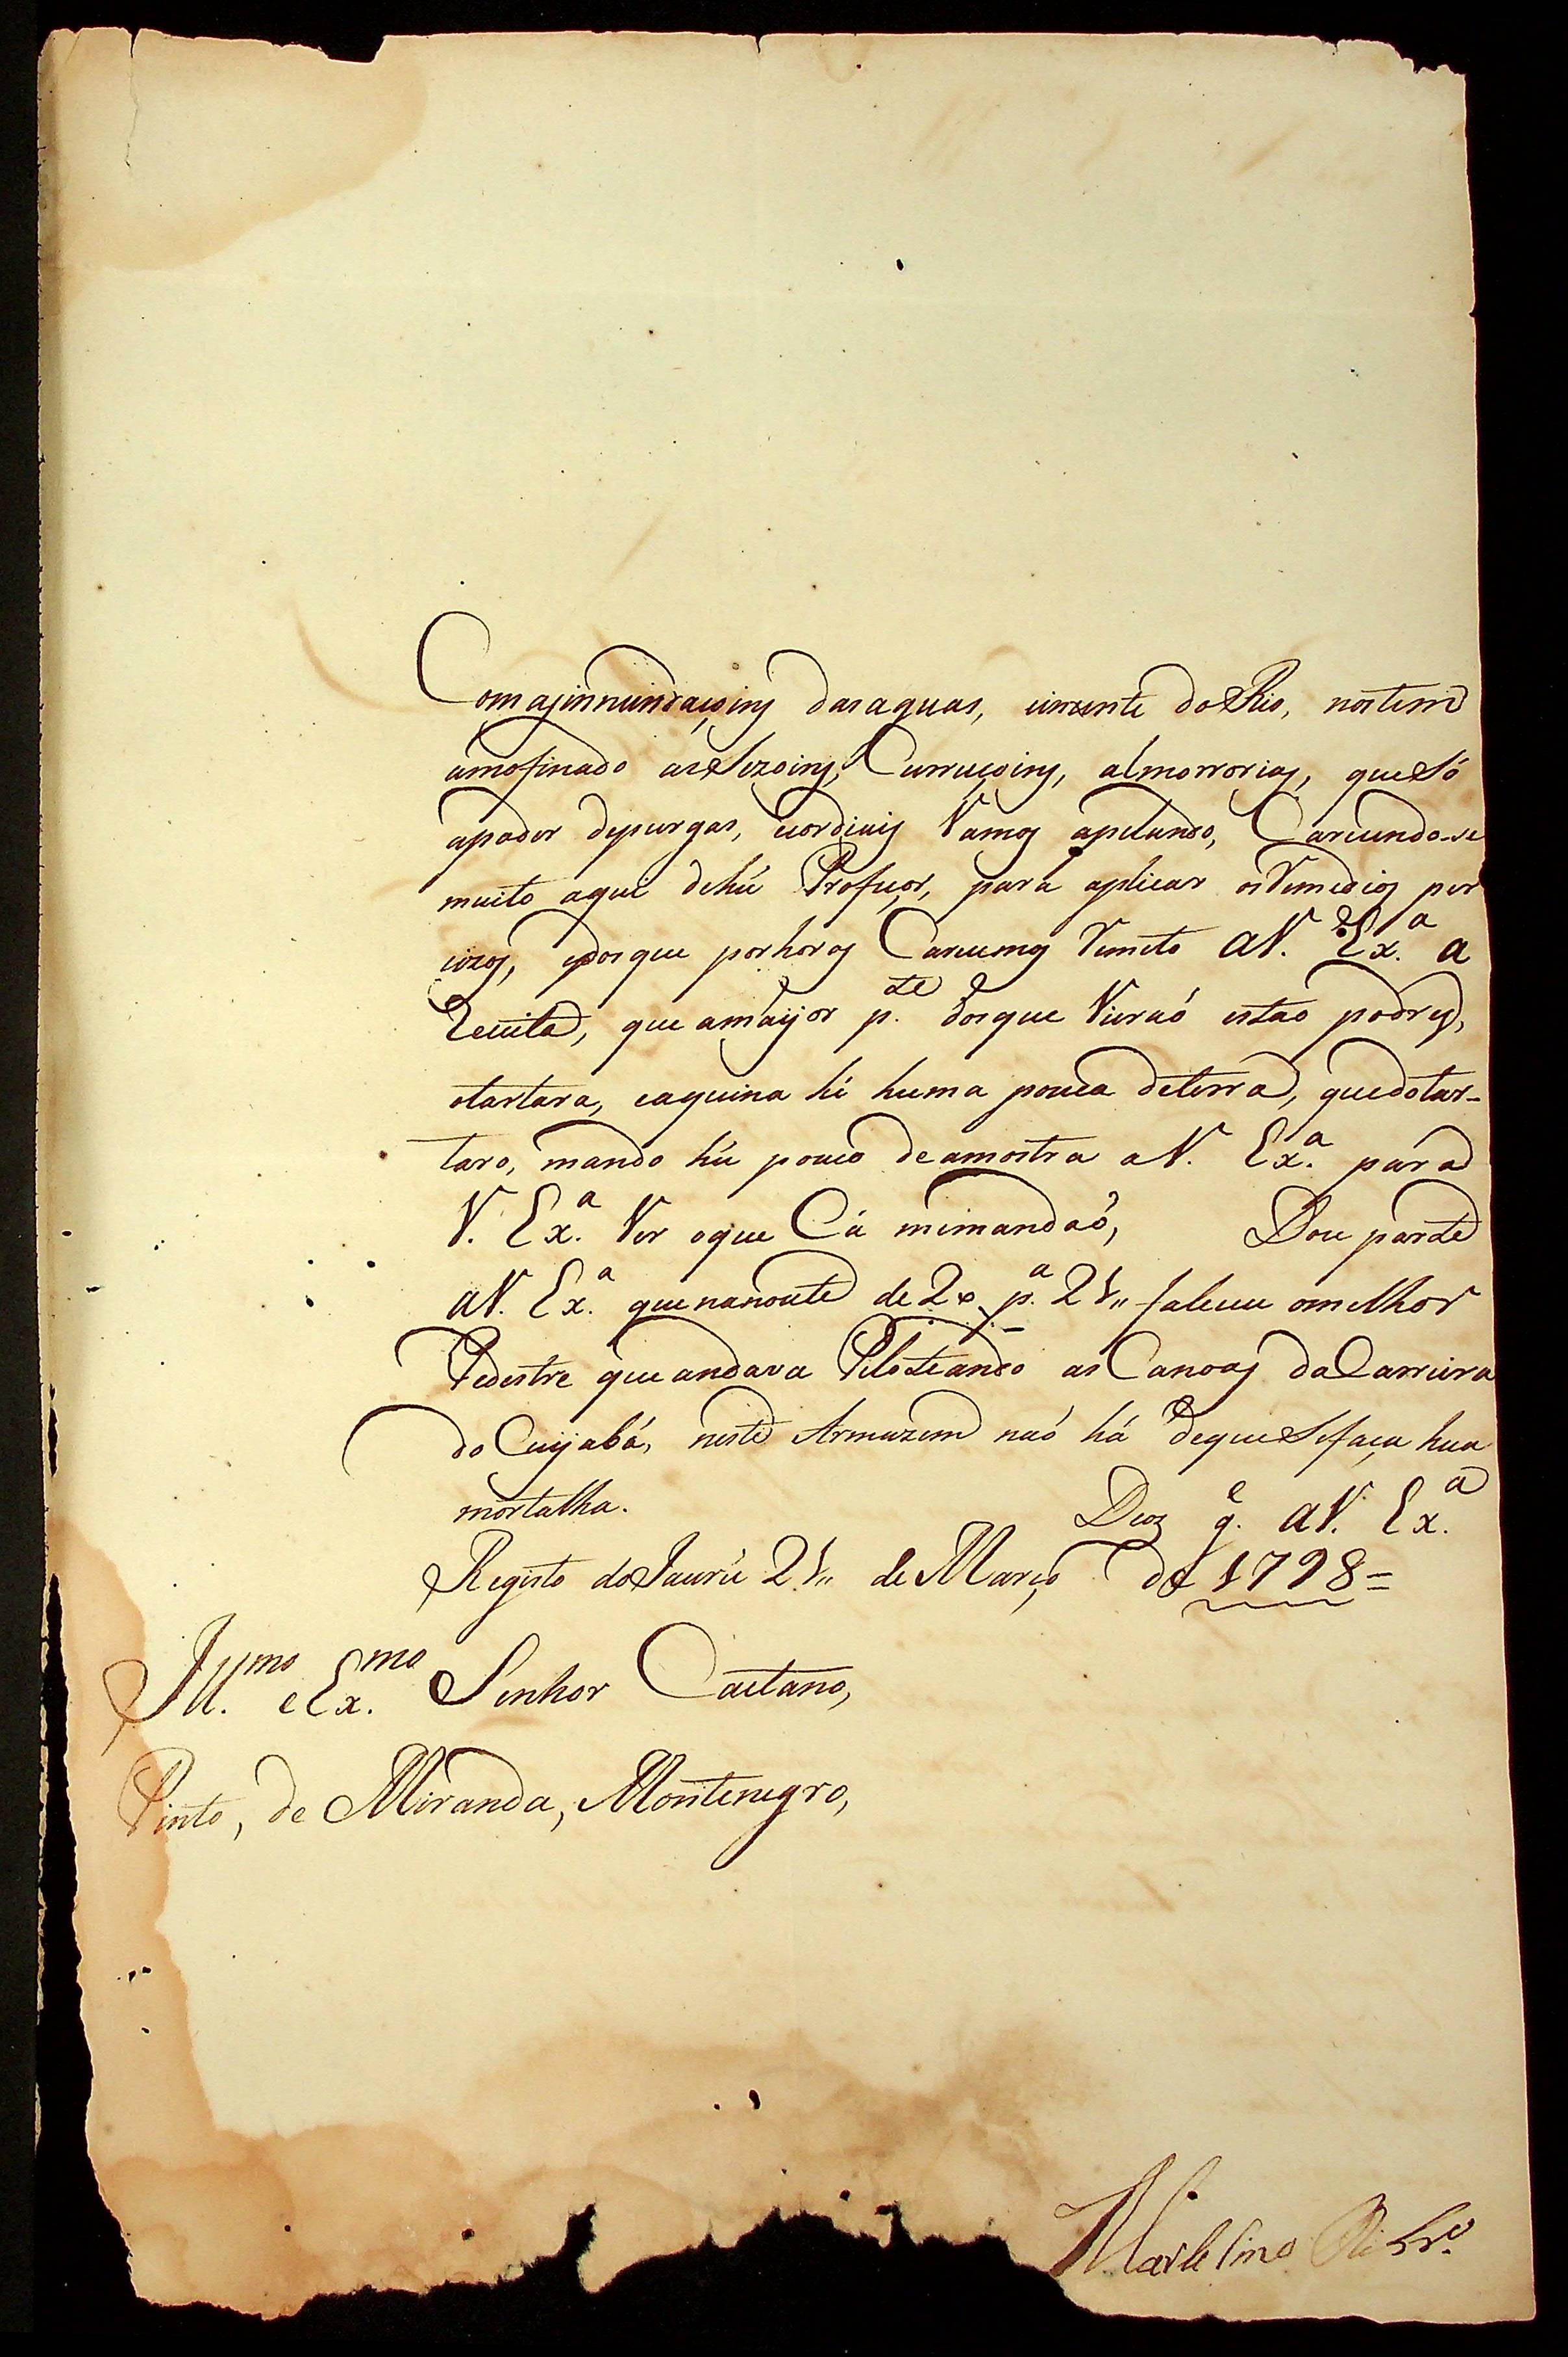 Com as innundaçoins das aguas, eincente do Rio, nos tem
amofinado as Sezoins, Curruçoins, almorrorias, que Só
apoder depurgas, ecordiais Vamos apelando, Carecendo-se
muito aqui dehú Profeçor, para aplicar os Remedios per
cizos, edos que por horas Carecemos Remeto aV. Ex.ª a
Receita, que amaijor p.te dos que Vieraó estao podres,
otartara, eaquina hé huma pouca deterra, quedotar-
taro, mando hú pouco deamostra aV. Ex.ª para
V. Ex.ª Ver oque Cá memandaó, Dou parte
aV. Ex.ª quenanoute de 20 p.ª 21,, faleceu omelhor
Pedestre que andava Piloteando as Canoas da Carreira
do Cuijabá, neste Armazem naó há deque Sefaça hua
mortalha. Deos g.e aV. Ex.ª
Registo do Jaurú 21,, de Março de 1798=
Ill.mo e Ex.mo Senhor Caetano,
Pinto, de Miranda, Montenegro,
Marcelino Ribr.o